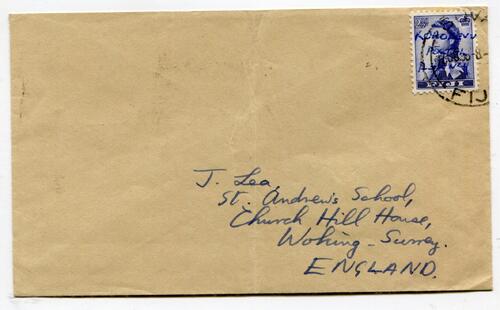 FIJI
J. Lea,
St. Andrew's School,
Church Hill House,
Woking - Surrey.
ENGLAND.